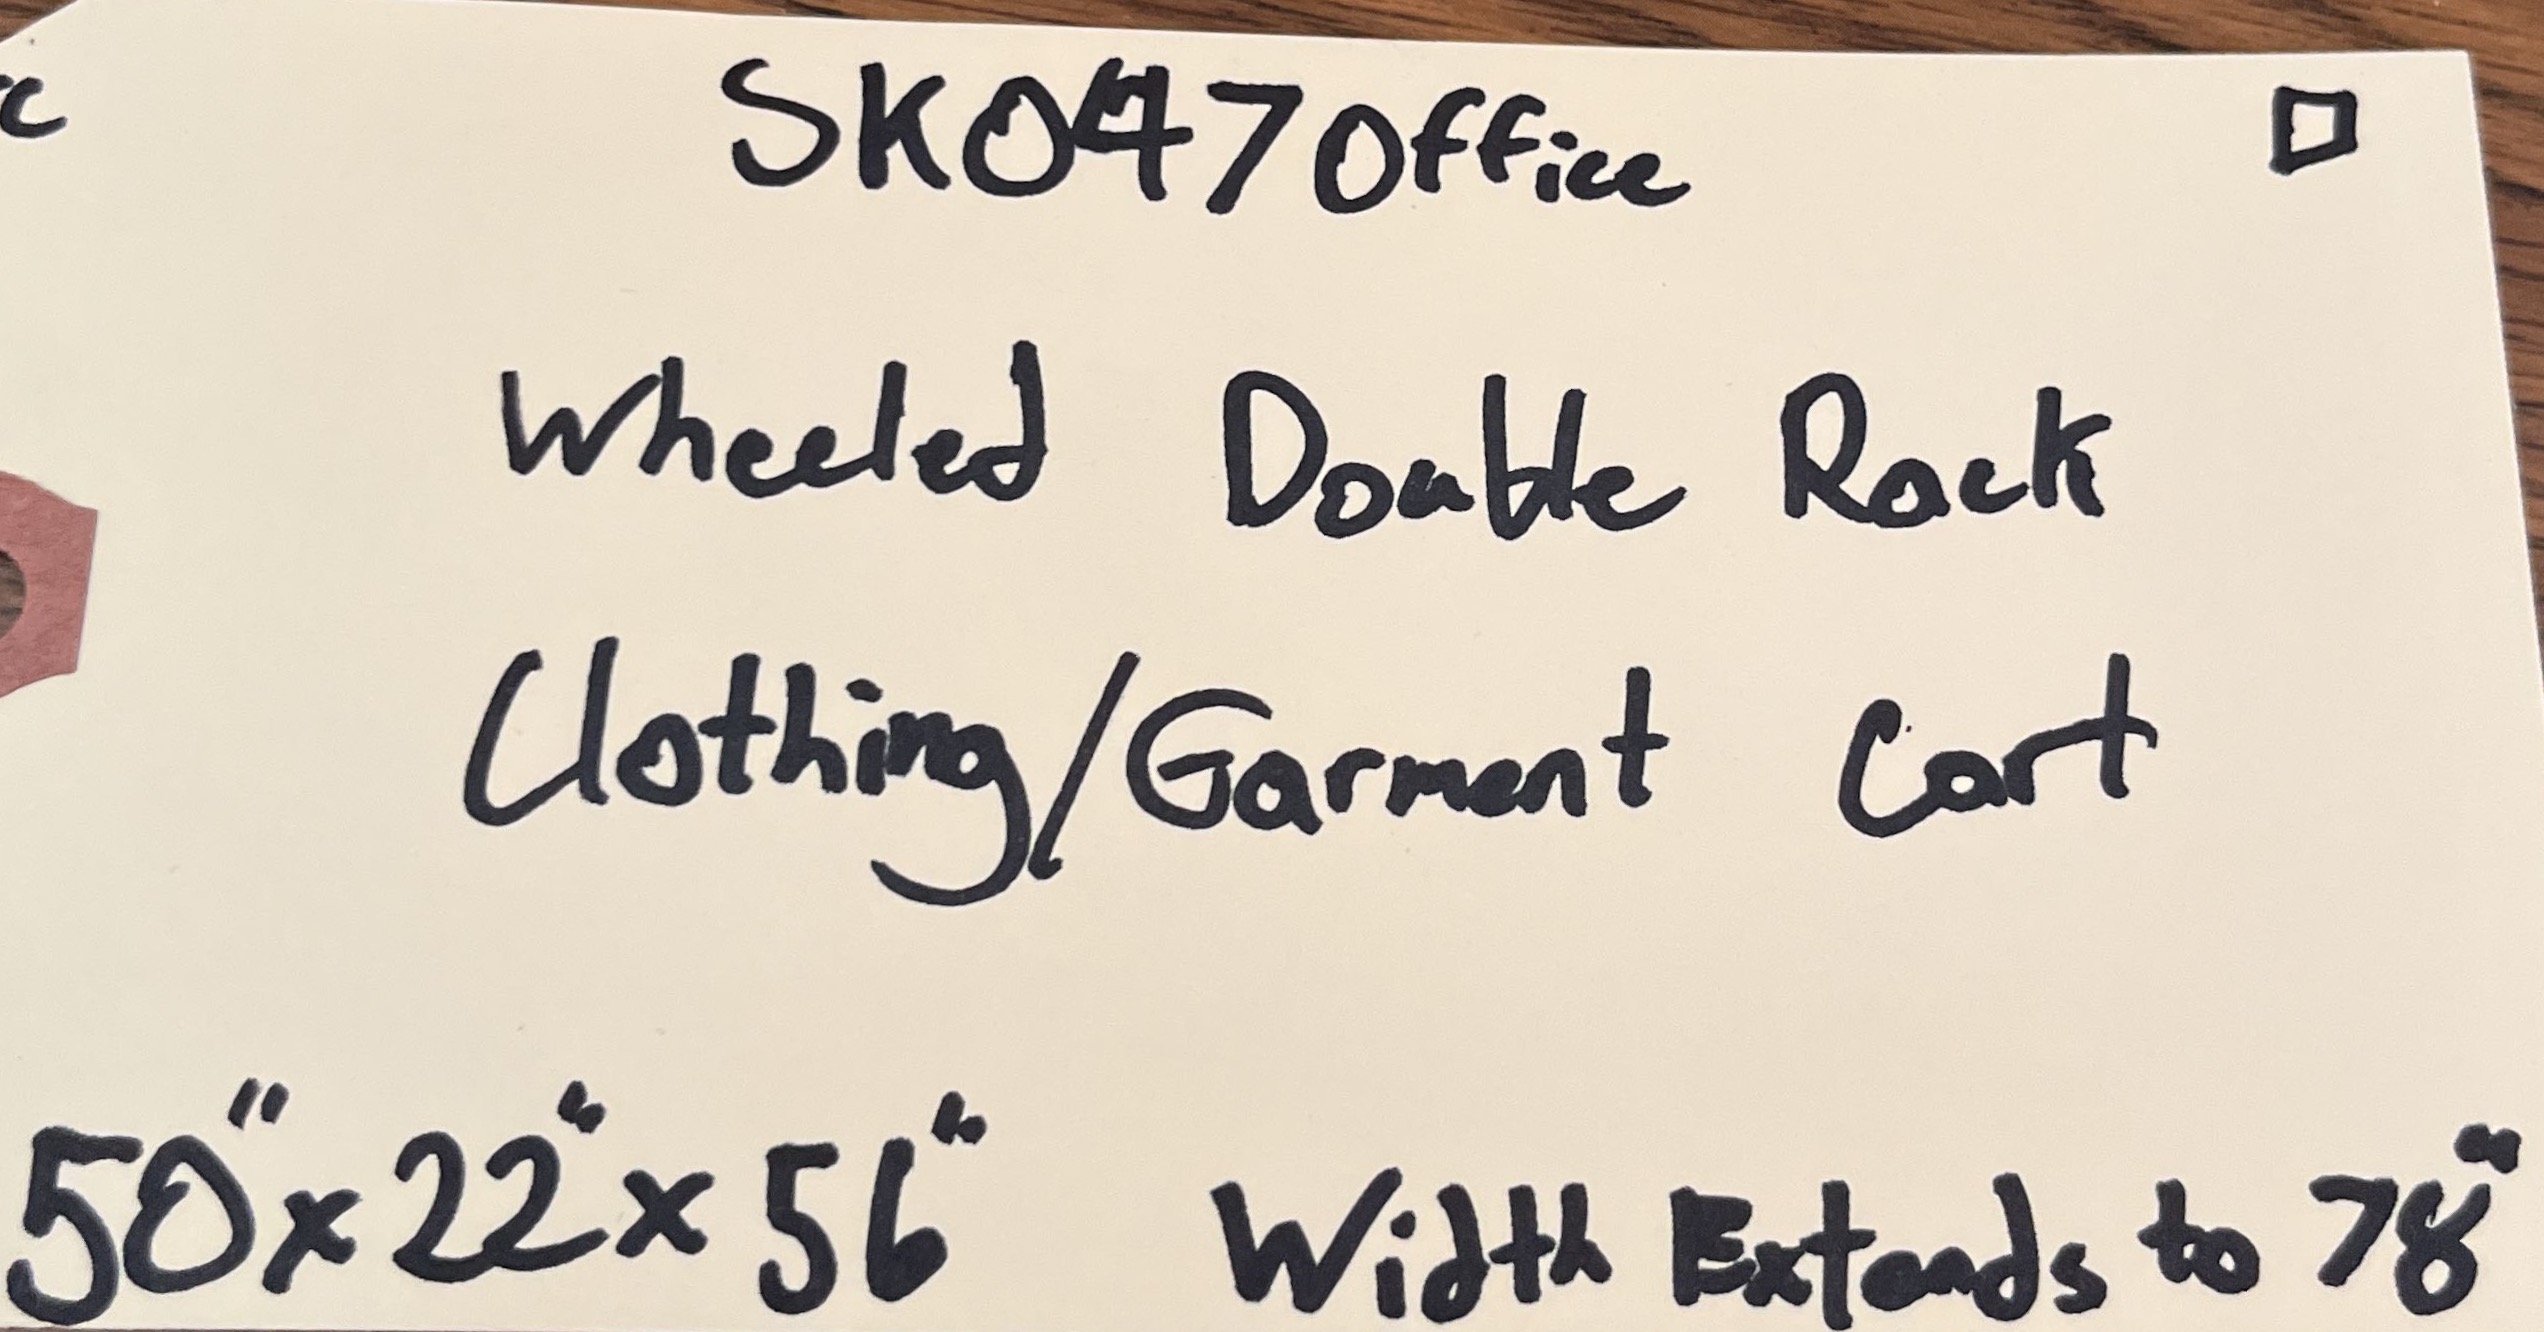 SK047Office
Wheeled Double Rack
Clothing/Garment Cart
50"x22"x56" Width Extends to 78"